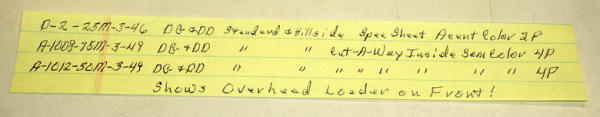 D-2-25M-3-46 DG & DD Standard & Hillside Spec Sheet Accent Color 2P
A-1008-75M-3-49 DG & DD " " Cut-A-Way Inside Sam Color 4P
A-1012-50M-3-49 DG & DD " " " " " " " " 4P
Shows Overhead Loader on Front!